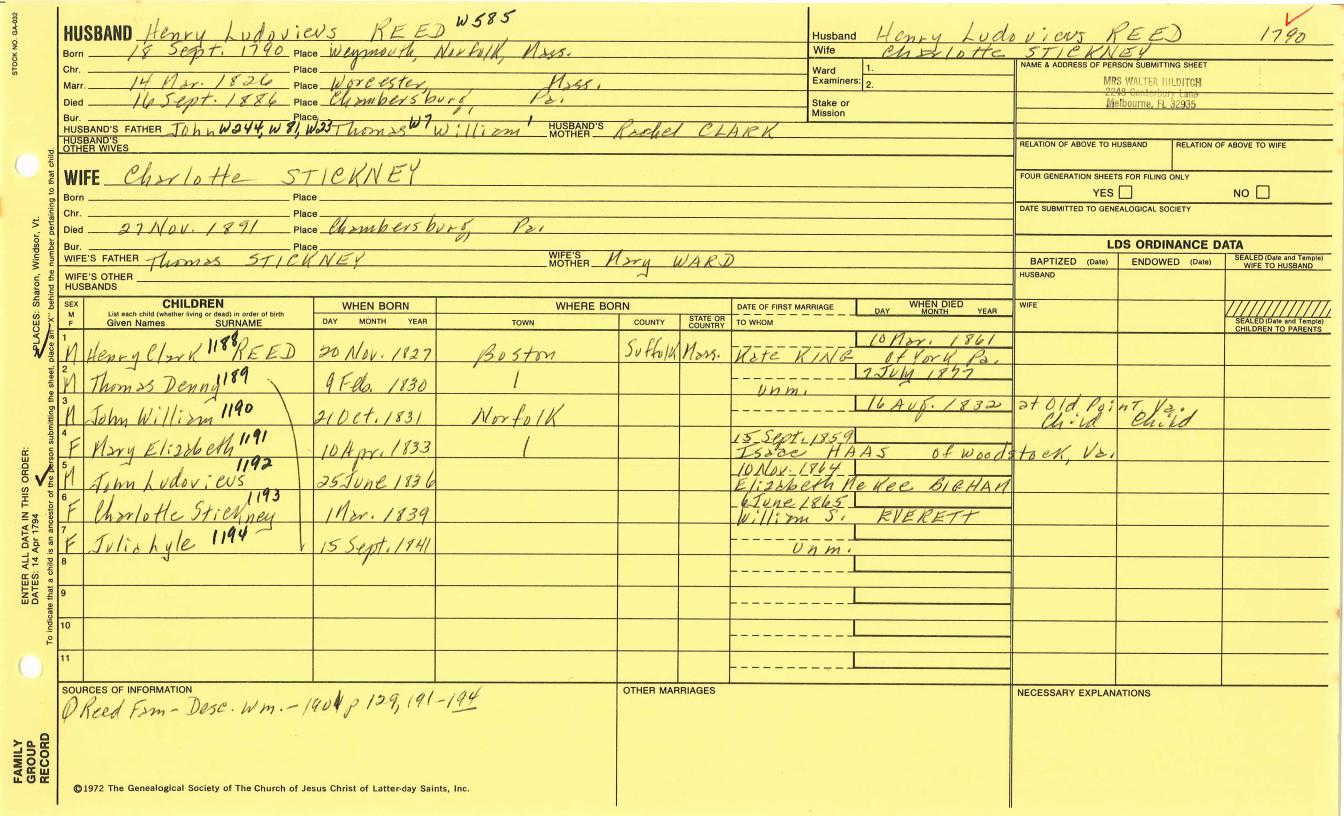 STOCK NO. GA-002
HUSBAND Henry Ludovicus REED W585
Born 18 Sept. 1790 Place Weymouth, Norfolk, Mass.
Chr. Place
Marr. 14 Mar. 1826 Place Worcester, Mass.
Died 16 Sept. 1886 Place Chambersburg, Pa.
Bur. Place
HUSBAND'S FATHER John W244, W81, W23 Thomas W7 William 1 HUSBAND'S MOTHER Rachel CLARK
HUSBAND'S OTHER WIVES
Husband Henry Ludovicus REED 1790
Wife Charlotte STICKNEY
Ward Examiners: 1.
2.
Stake or Mission
NAME & ADDRESS OF PERSON SUBMITTING SHEET
MRS WALTER HILDITCH
2248 Canterbury Lane
Melbourne, FL 32935
RELATION OF ABOVE TO HUSBAND RELATION OF ABOVE TO WIFE
FOUR GENERATION SHEETS FOR FILING ONLY
YES NO
DATE SUBMITTED TO GENEALOGICAL SOCIETY
WIFE Charlotte STICKNEY
Born Place
Chr. Place
Died 27 Nov. 1891 Place Chambersburg, Pa.
Bur. Place
WIFE'S FATHER Thomas STICKNEY WIFE'S MOTHER Mary WARD
WIFE'S OTHER HUSBANDS
LDS ORDINANCE DATA
BAPTIZED (Date) ENDOWED (Date) SEALED (Date and Temple) WIFE TO HUSBAND
HUSBAND
WIFE
SEALED (Date and Temple) CHILDREN TO PARENTS
SEX M F CHILDREN WHEN BORN WHERE BORN DATE OF FIRST MARRIAGE WHEN DIED
List each child (whether living or dead) in order of birth
Given Names SURNAME DAY MONTH YEAR TOWN COUNTY STATE OR COUNTRY TO WHOM DAY MONTH YEAR
1 M Henry Clark 1188 REED 20 Nov. 1827 Boston Suffolk Mass. Kate KING 10 Mar. 1861 of York Pa.
2 M Thomas Denny 1189 9 Feb. 1830 unm. 7 July 1877
3 M John William 1190 21 Oct. 1831 Norfolk 16 Aug. 1832 at Old Point, Va. Child Child
4 F Mary Elizabeth 1191 10 Apr. 1833 15 Sept. 1859 Isaac HAAS of Woodstock, Va.
5 M John Ludovicus 1192 25 June 1836 10 Nov. 1864 Elizabeth McKee BIGHAM
6 F Charlotte Stickney 1193 1 Mar. 1839 6 June 1865 William S. EVERETT
7 F Julia Lyle 1194 15 Sept. 1841 unm.
8
9
10
11
SOURCES OF INFORMATION
Reed Fam - Desc. Wm. - 1901 p 129, 191-194
OTHER MARRIAGES
NECESSARY EXPLANATIONS
©1972 The Genealogical Society of The Church of Jesus Christ of Latter-day Saints, Inc.
ENTER ALL DATA IN THIS ORDER:
DATES: 14 Apr 1794
PLACES: Sharon, Windsor, Vt.
To indicate that a child is an ancestor of the person submitting the sheet, place an "X" behind the number pertaining to that child.
FAMILY GROUP RECORD